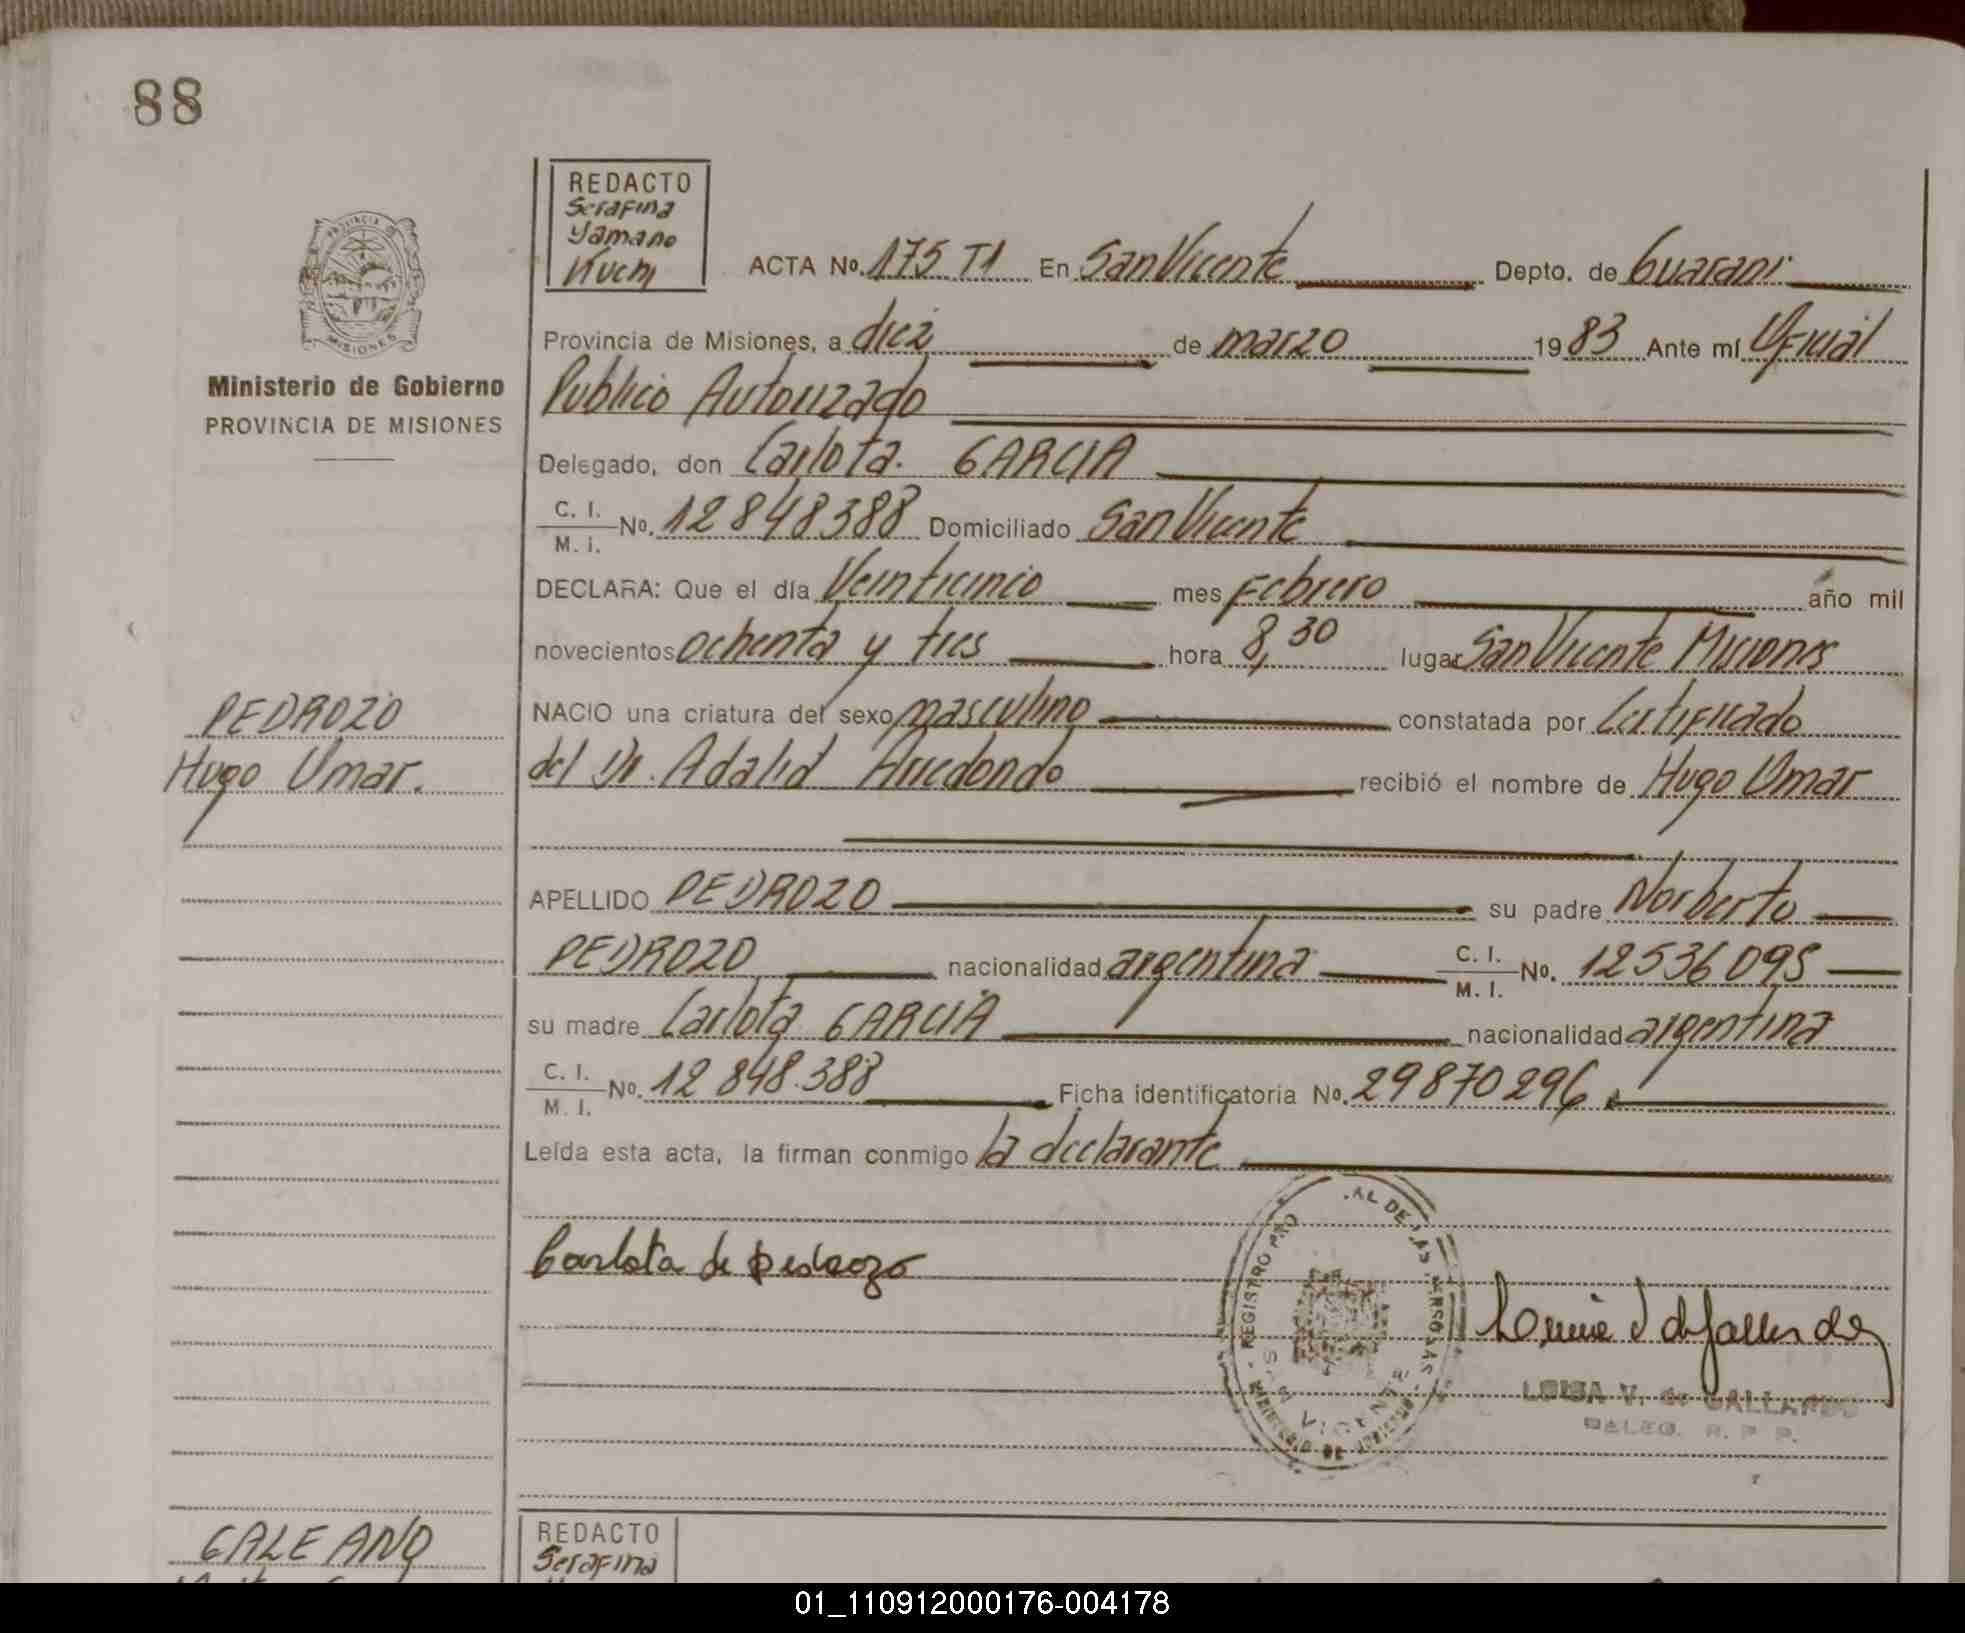 88
REDACTO
Serafina
Yamano
Kuchi
PROVINCIA DE
MISIONES
Ministerio de Gobierno
PROVINCIA DE MISIONES
ACTA No. 175 T1 En San Vicente Depto. de Guaraní
Provincia de Misiones, a diez de marzo 1983 Ante mí Oficial
Publico Autorizado
Delegado, don Carlota GARCIA
C. I. M. I. No. 12848388 Domiciliado San Vicente
DECLARA: Que el día Veinticinco mes Febrero año mil
novecientos ochenta y tres hora 8,30 lugar San Vicente Misiones
NACIO una criatura del sexo masculino constatada por Certificado
del Dr. Adalid Arredondo recibió el nombre de Hugo Omar
PEDROZO
Hugo Omar.
APELLIDO PEDROZO su padre Norberto
PEDROZO nacionalidad argentina C. I. M. I. No. 12536095
su madre Carlota GARCIA nacionalidad argentina
C. I. M. I. No. 12 848.388 Ficha identificatoria No. 29870296
Leída esta acta, la firman conmigo la declarante
Carlota de Pedrozo
LUISA V. de GALLARDO
DELEG. R. P. P.
GALEANO
REDACTO
Serafina
01_110912000176-004178